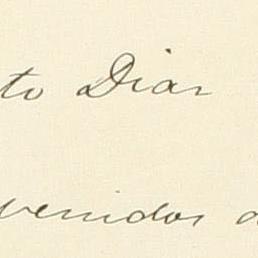 to Diaz
venidos a